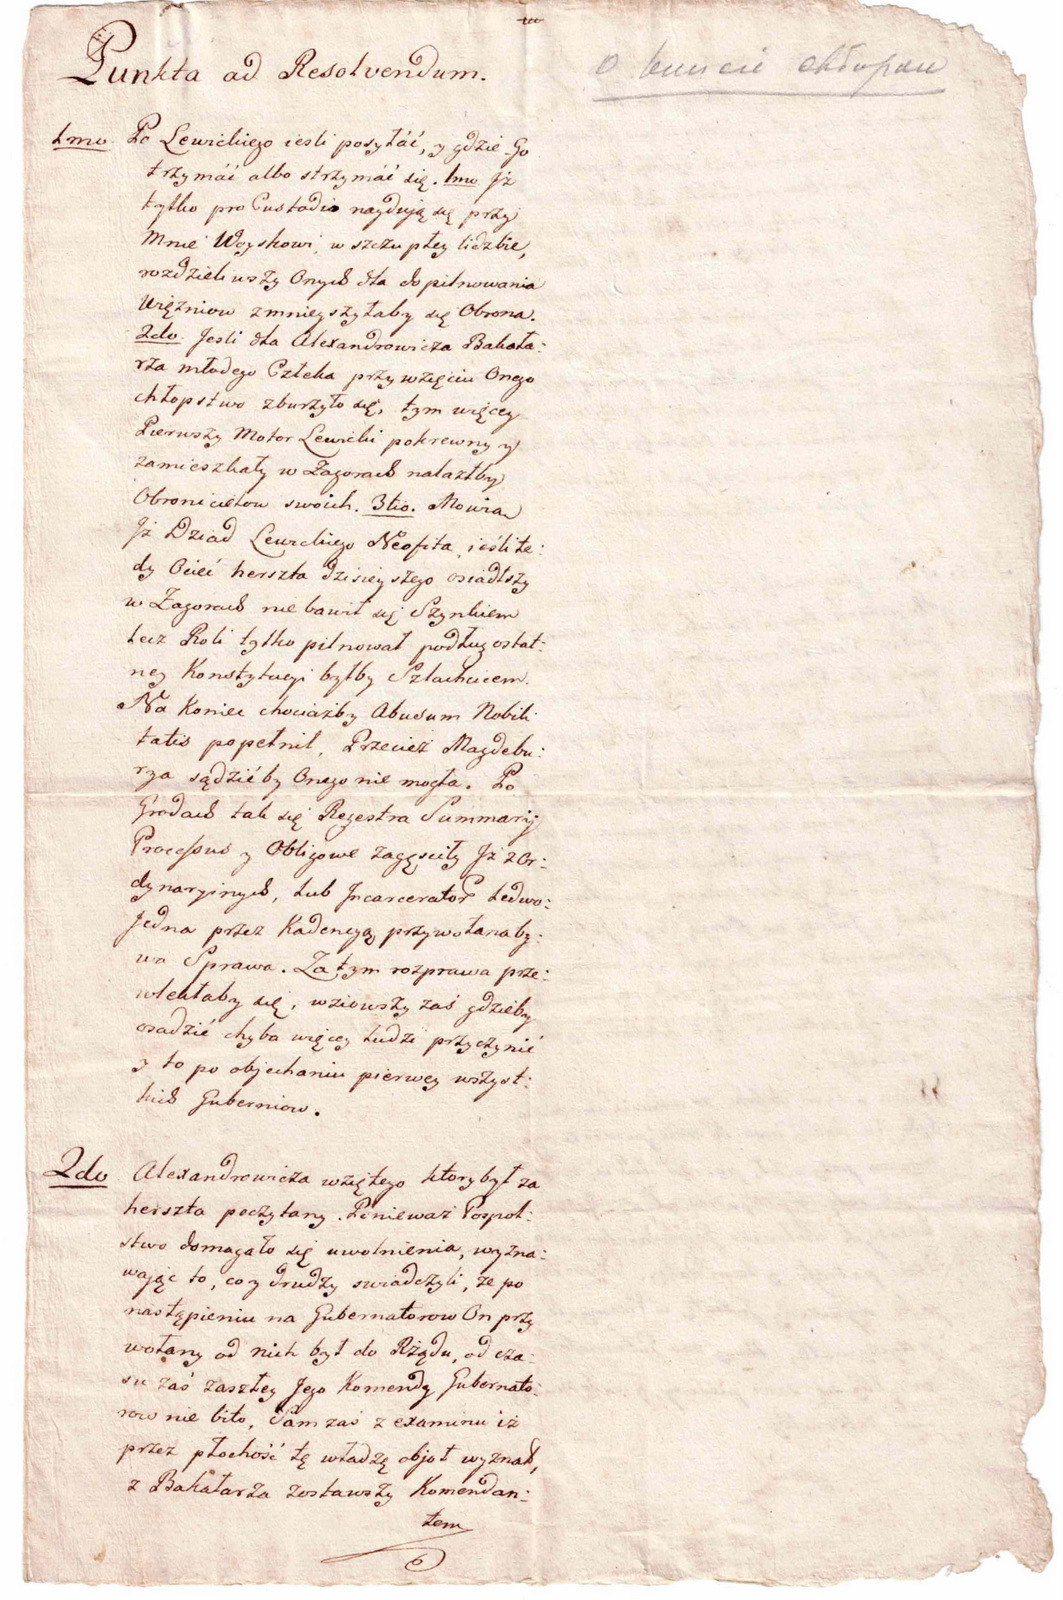 Punkta ad Resolvendum.
o buncie chłopów
1mo Po Lewickiego iesli posyłáć, y gdzie Go
trzymáć albo strzymáć się. 1mo Jż
tylko pro Custodia naydują się przy
Mnie Woyskowi w szczupłey liczbie,
rozdzieliwszy Onych dla dopilnowania
Więzniow zmnieyszyłaby się Obrona.
2do. Jesli dla Alexandrowicza Bakała:
rza młodego Człeka przy wzięciu Onego
chłopstwo zburzyło się, tym więcey
Pierwszy Motor Lewicki pokrewny y
zamieszkały w Zagorach nalazłby
Obronicielow swoich. 3tio. Mowią
Jż Dziad Lewickiego Neofita, iesli te:
dy Ociec herszta dzisieyszego osiadłszy
w Zagorach nie bawił się Szynkiem
lecz Roli tylko pilnował podług ostat:
ney Konstytucyi byłby Szlachcicem.
Na koniec chociażby Abusum Nobili
tatis popełnił, Przecież Magdebu:
rya sądzić by Onego nie mogła. Po
Grodach tak się Regestra Summarij
Processus y Obligowe zagęsciły Jż z Or:
dynaryinych, lub Incarceratorũ ledwo:
Jedna przez Kadencyą przywołana by:
wa Sprawa. Zatym rozprawa prze:
wlekłaby się, wziowszy zaś gdzieby
osadzić chyba więcey Ludzi przyczynić
y to po objechaniu pierwey wszyst:
kich Guberniow.
2do Alexandrowicza wziętego ktory był za
herszta poczytany. Ponieważ Pospol:
stwo domagało się uwolnienia, wyzna:
wając to, co y drudzy swiadczyli, że po
nastąpieniu na Gubernatorow On przy
wołany od nich był do Rządu, od cza:
su zaś zaszłey Jego Komendy Gubernato:
row nie bito, Sam zaś z examinu iż
przez płochość tę władzę objoł wyznał,
z Bakałarza zostawszy Komendan:
tem